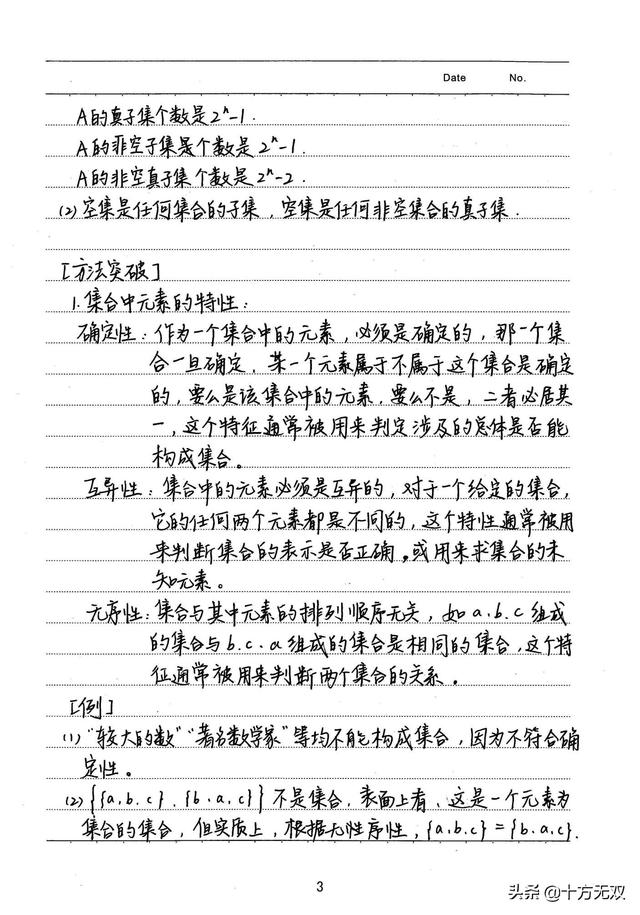 Date No.
A的真子集个数是2ⁿ-1.
A的非空子集是个数是2ⁿ-1.
A的非空真子集个数是2ⁿ-2.
(2) 空集是任何集合的子集,空集是任何非空集合的真子集.
[方法突破]
1.集合中元素的特性:
确定性:作为一个集合中的元素,必须是确定的,那一个集
合一旦确定,某一个元素属于不属于这个集合是确定
的,要么是该集合中的元素,要么不是,二者必居其
一,这个特征通常被用来判定涉及的总体是否能
构成集合。
互异性:集合中的元素必须是互异的,对于一个给定的集合,
它的任何两个元素都是不同的,这个特性通常被用
来判断集合的表示是否正确。或用来求集合的未
知元素。
无序性:集合与其中元素的排列顺序无关,如a.b.c组成
的集合与b.c.a组成的集合是相同的集合,这个特
征通常被用来判断两个集合的关系。
[例]
(1)"较大的数""著名数学家"等均不能构成集合,因为不符合确
定性。
(2){{a.b.c}.{b.a.c}}不是集合,表面上看,这是一个元素为
集合的集合,但实质上,根据无性序性,{a.b.c}={b.a.c}.
3
头条@十方无双